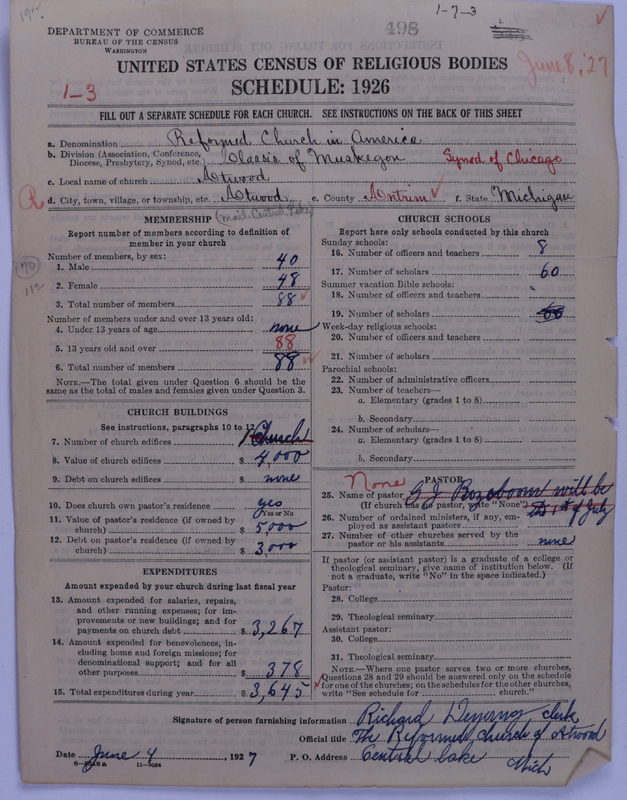 1-7-3
498
DEPARTMENT OF COMMERCE
BUREAU OF THE CENSUS
WASHINGTON
June 8, 27
UNITED STATES CENSUS OF RELIGIOUS BODIES
1-3
SCHEDULE: 1926
FILL OUT A SEPARATE SCHEDULE FOR EACH CHURCH. SEE INSTRUCTIONS ON THE BACK OF THIS SHEET
a. Denomination Reformed Church in America
b. Division (Association, Conference, Diocese, Presbytery, Synod, etc.) Classis of Muskegon Synod of Chicago
c. Local name of church Atwood
d. City, town, village, or township, etc. Atwood e. County Antrim f. State Michigan
(mail Central Lake)
MEMBERSHIP
Report number of members according to definition of
member in your church
Number of members, by sex:
1. Male 40
2. Female 48
3. Total number of members 88
Number of members under and over 13 years old:
4. Under 13 years of age none
5. 13 years old and over 88
6. Total number of members 88
NOTE.—The total given under Question 6 should be
same as the total of males and females given under Question 3.
70
112
CHURCH BUILDINGS
See instructions, paragraphs 10 to 12
7. Number of church edifices 1 Church
8. Value of church edifices $ 4,000
9. Debt on church edifices $ none
10. Does church own pastor's residence? yes
Yes or No
11. Value of pastor's residence (if owned by
church) $ 5,000
12. Debt on pastor's residence (if owned by
church) $ 3,000
EXPENDITURES
Amount expended by your church during last fiscal year
13. Amount expended for salaries, repairs,
and other running expenses; for im-
provements or new buildings; and for
payments on church debt $ 3,267
14. Amount expended for benevolences, in-
cluding home and foreign missions; for
denominational support; and for all
other purposes $ 378
15. Total expenditures during year $ 3,645
CHURCH SCHOOLS
Report here only schools conducted by this church
Sunday schools:
16. Number of officers and teachers 8
17. Number of scholars 60
Summer vacation Bible schools:
18. Number of officers and teachers
19. Number of scholars
Week-day religious schools:
20. Number of officers and teachers
21. Number of scholars
Parochial schools:
22. Number of administrative officers
23. Number of teachers—
a. Elementary (grades 1 to 8)
b. Secondary
24. Number of scholars—
a. Elementary (grades 1 to 8)
b. Secondary
PASTOR
None
25. Name of pastor G J Rozeboom will be
(If church has no pastor, write "None") the 1st of July
26. Number of ordained ministers, if any, em-
ployed as assistant pastors
27. Number of other churches served by the
pastor or his assistants none
If pastor (or assistant pastor) is a graduate of a college or
theological seminary, give name of institution below. (If
not a graduate, write "No" in the space indicated.)
Pastor:
28. College
29. Theological seminary
Assistant pastor:
30. College
31. Theological seminary
NOTE.—Where one pastor serves two or more churches,
Questions 28 and 29 should be answered only on the schedule
for one of the churches; on the schedules for the other churches,
write "See schedule for church."
Signature of person furnishing information Richard clerk
Official title The Reformed church of Atwood
Date June 4, 1927 P. O. Address Central Lake
Mich
11-9054